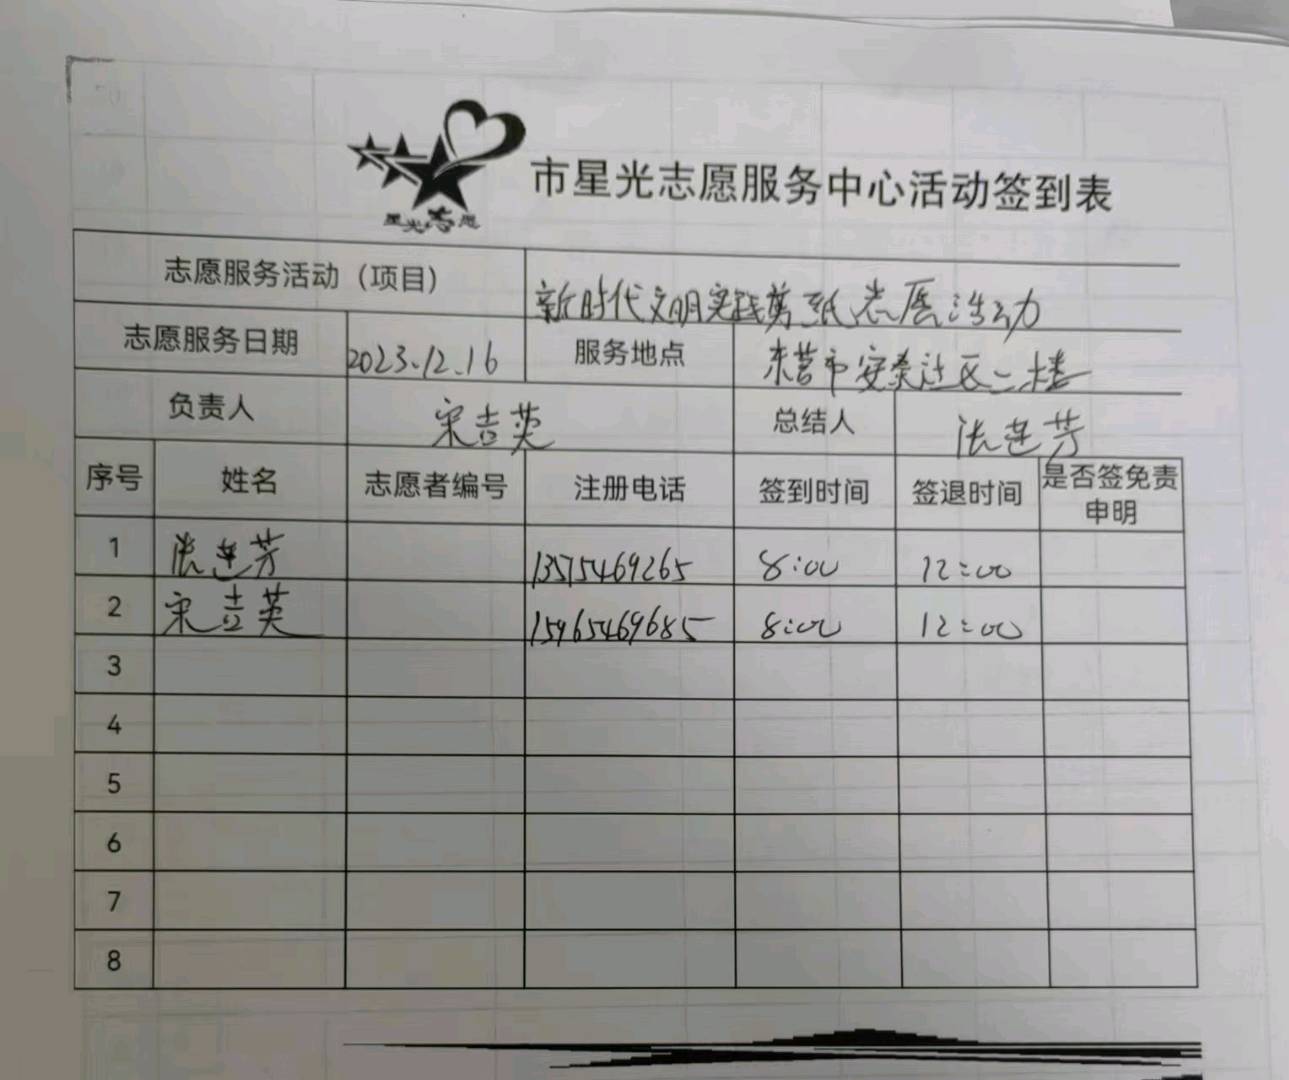 星光志愿
市星光志愿服务中心活动签到表
志愿服务活动（项目） 新时代文明实践剪纸志愿活动
志愿服务日期 2023.12.16 服务地点 东营市安泰社区二楼
负责人 宋吉英 总结人 张莲芳
序号 姓名 志愿者编号 注册电话 签到时间 签退时间 是否签免责申明
1 张莲芳 13515469265 8:00 12:00
2 宋吉英 15965469685 8:00 12:00
3
4
5
6
7
8